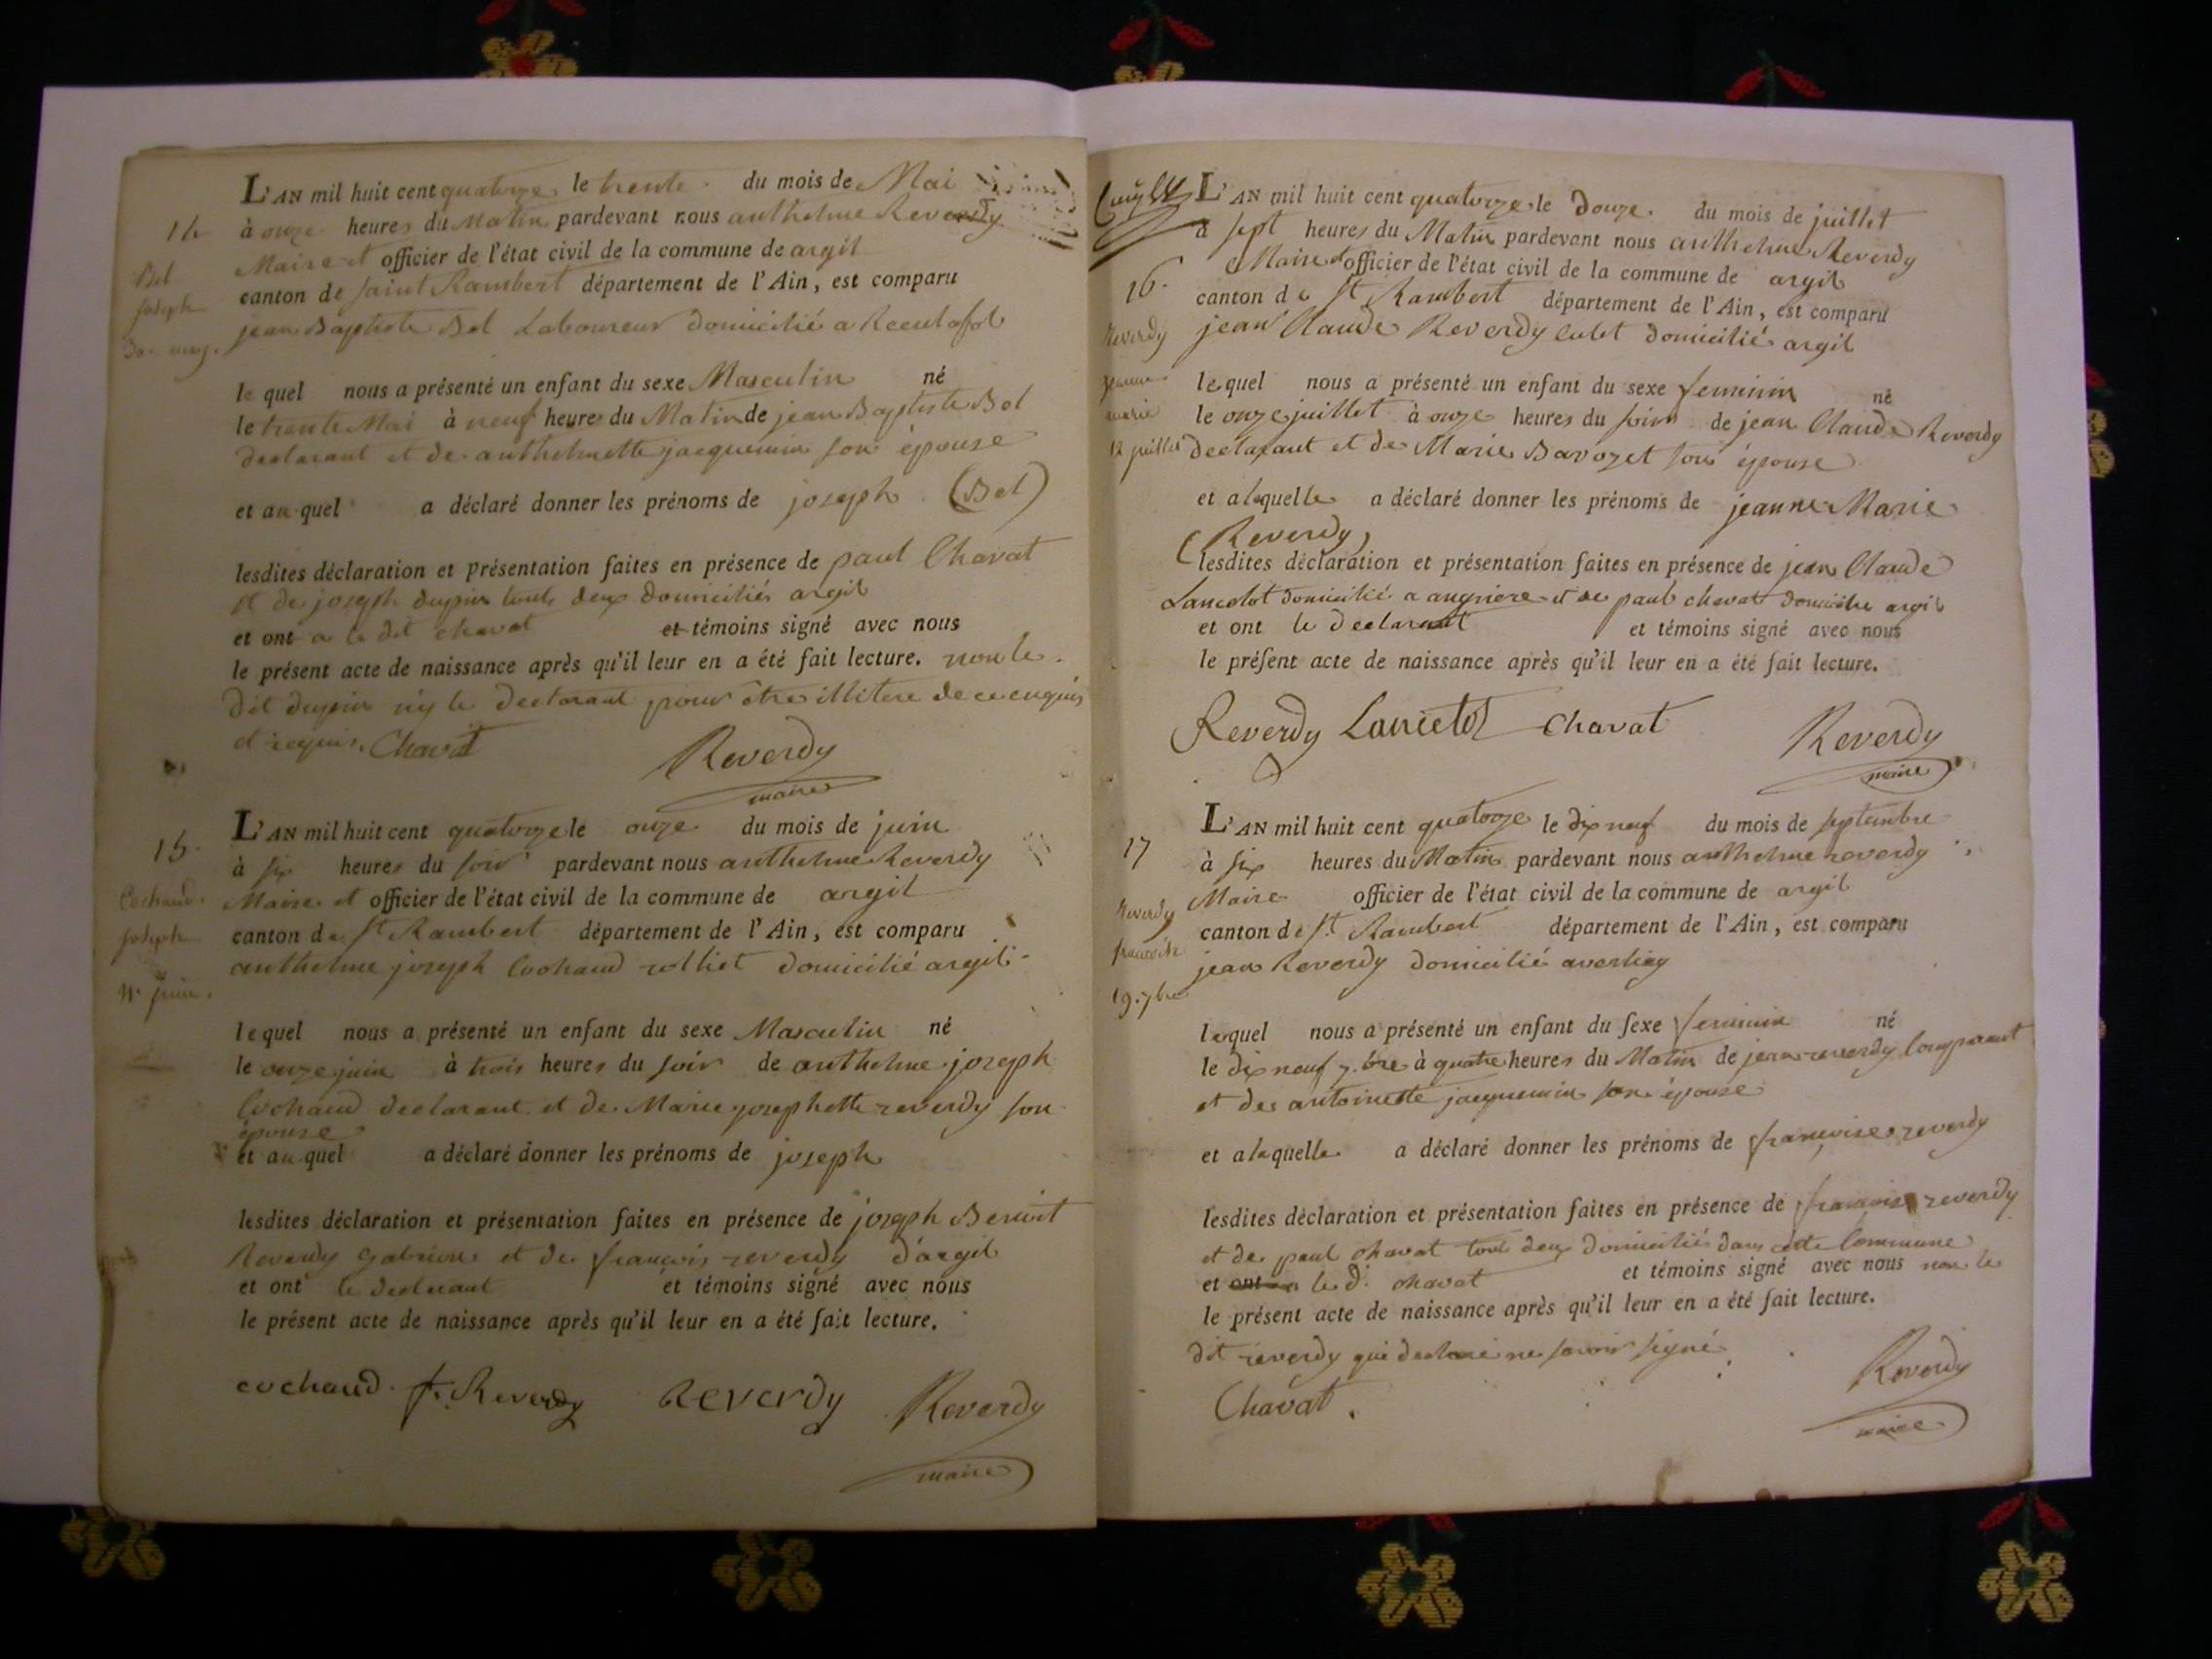 L'AN mil huit cent quatorze le trente du mois de Mai
14 à onze heures du Matin pardevant nous anthelme Reverdy
Maire et officier de l'état civil de la commune de argil
Bel
canton de saint Rambert département de l'Ain, est comparu
joseph
jean Baptiste Bel Laboureur domicilié a
30 may.
le quel nous a présenté un enfant du sexe Masculin né
le trente Mai à neuf heures du Matin de jean Baptiste Bel
declarant et de anthelmette jacquemin son épouse
et au quel a déclaré donner les prénoms de joseph (Bel)
lesdites déclaration et présentation faites en présence de paul Chavat
et de joseph dupuis touts deux domiciliés argil
et ont a le dit chavat et témoins signé avec nous
le présent acte de naissance après qu'il leur en a été fait lecture. non le
dit dupuis ny le declarant pour être illitere de ce enquis
et requis. Chavat
Reverdy
maire
L'AN mil huit cent quatorze le onze du mois de juin
15. à six heures du soir pardevant nous anthelme Reverdy
Cochaud Maire et officier de l'état civil de la commune de argil
joseph canton de St Rambert département de l'Ain, est comparu
anthelme joseph Cochaud domicilié argil
11 juin.
le quel nous a présenté un enfant du sexe Masculin né
le onze juin à trois heures du soir de anthelme joseph
Cochaud declarant et de Marie josephette reverdy son
épouse
et au quel a déclaré donner les prénoms de joseph
lesdites déclaration et présentation faites en présence de joseph Benoit
Reverdy et de françois reverdy d'argil
et ont le declarant et témoins signé avec nous
le présent acte de naissance après qu'il leur en a été fait lecture.
cochaud f. Reverdy Reverdy Reverdy
maire
L'AN mil huit cent quatorze le douze du mois de juillet
à sept heures du Matin pardevant nous anthelme Reverdy
Maire et officier de l'état civil de la commune de argil
16. canton de St Rambert département de l'Ain, est comparu
Reverdy jean Claude Reverdy domicilié argil
jeanne le quel nous a présenté un enfant du sexe feminin né
marie le onze juillet à onze heures du soir de jean Claude Reverdy
12 juillet declarant et de Marie Savozet son épouse
et a la quelle a déclaré donner les prénoms de jeanne Marie
(Reverdy)
lesdites déclaration et présentation faites en présence de jean Claude
Lancelot domicilié a angriere et de paul chavat domicilié argil
et ont le declarant et témoins signé avec nous
le présent acte de naissance après qu'il leur en a été fait lecture.
Reverdy Lancelot Chavat Reverdy
maire
L'AN mil huit cent quatorze le dix neuf du mois de septembre
17 à six heures du Matin pardevant nous anthelme reverdy
Maire officier de l'état civil de la commune de argil
Reverdy
canton de St. Rambert département de l'Ain, est comparu
francoise
jean Reverdy domicilié
19. 7bre
le quel nous a présenté un enfant du sexe feminin né
le dix neuf 7.bre à quatre heures du Matin de jean reverdy Comparant
et de antoinette jacquemin son épouse
et a la quelle a déclaré donner les prénoms de françoise reverdy
lesdites déclaration et présentation faites en présence de françois reverdy
et de paul chavat touts deux domiciliés dans cette Commune
et ont a le d. chavat et témoins signé avec nous non le
le présent acte de naissance après qu'il leur en a été fait lecture.
dit reverdy qui declare ne savoir signé
Chavat. Reverdy
maire